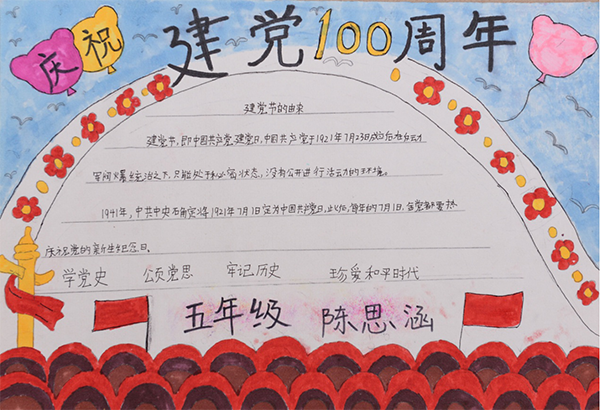 庆祝
建党100周年
建党节的由来
建党节,即中国共产党建党日,中国共产党于1921年7月23日成立后在白
军阀 统治之下,只能处于秘密状态,没有公开进行活动的环境。
1941年,中共中央确定将1921年7月1日定为中国共产党日,此后,每年的7月1日,全党都要热
庆祝党的新生纪念日。
学党史 颂党思 牢记历史 珍爱和平时代
五年级 陈思涵